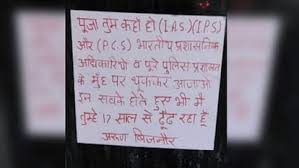 पूजा तुम कहाँ हो (I.A.S) (I.P.S)
और (P.C.S) भारतीय प्रशासनिक
अधिकारियों व पूरे पुलिस प्रशासन
के मुँह पर थूककर आजाओ
इन सबके होते हुए भी मै
तुम्हे 17 साल से ढूँढ रहा हूँ
अरुण बिजनौर